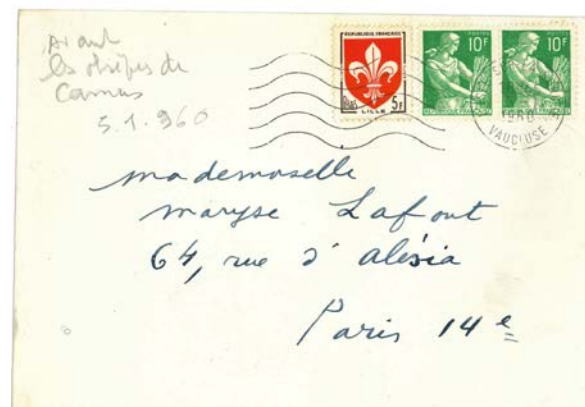 Avant
les obsèques de
Camus
5.1.960
REPUBLIQUE FRANÇAISE
5F
LILLE
POSTES
10F
POSTES
10F
1960
VAUCLUSE
mademoiselle
maryse Lafont
64, rue d'alésia
Paris 14e